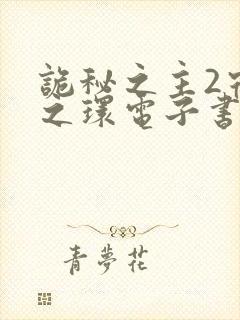 詭秘之主2
之環電子書
青夢花